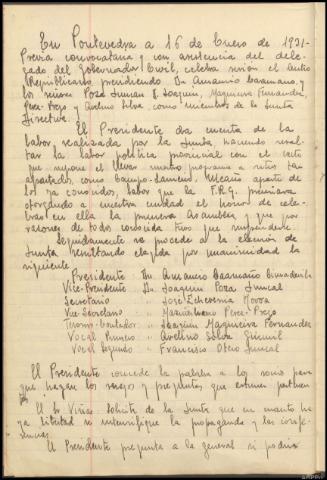 En Pontevedra a 16 de Enero de 1931-
Previa convocatoria y con asistencia del dele-
gado del Gobernador Civil, celebra sesión el Centro
Republicano, presidiendo Dn Amancio Caamaño, y
los señores Poza Juncal D. Joaquin, Magueira Fernandez,
Perez Prego y Avelino Silva como miembros de la Junta
Directiva.
El Presidente da cuenta de la
labor realizada por la Junta, haciendo resal-
tar la labor politica provincial con el exito
que supone el llevar nuestro programa a sitios tan
apartados, como Campo-Lameiro, Meaño aparte de
los ya conocidos, labor que la F.R.G. premiara
otorgando a nuestra ciudad el honor de cele-
brar en ella la primera Asamblea y que por
razones de todos conocida tuvo que suspenderse.
Seguidamente se procede a la elección de
Junta resultando elegida por unanimidad la
siguiente
Presidente Dn. Amancio Caamaño
Vice-Presidente D. Joaquin Poza Juncal
Secretario " José Echeverria Novoa
Vice-Secretario " Maximiliano Perez-Prego
Tesorero-Contador " Joaquin Magueira Fernandez
Vocal Primero " Avelino Silva
Vocal Segundo " Francisco Otero Juncal
El Presidente concede la palabra a los socios para
que hagan los ruegos y preguntas que estimen
El Sr Viñas solicita de la Junta que en cuanto ha-
ya libertad se intensifique la propaganda y las confe-
rencias.
El Presidente pregunta a la general si podria